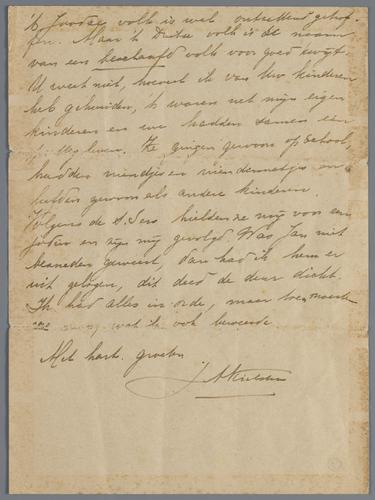 't Joodse volk is wel ontzettend getrof-
fen. Maar 't Duitse volk is de naam
van een beschaafd volk voor goed kwijt.
U weet niet, hoeveel ik van Uw kinderen
heb gehouden, 't waren net mijn eigen
kinderen en we hadden samen een
leven. Ze gingen gewoon op school,
hadden vriendjes en vriendinnetjes en
leefden gewoon als andere kinderen.
Volgens de S.Ders hielden ze mij voor een
Jodin en zijn mij gevolgd. Was Jan niet
beneden geweest, dan had ik hem er
uit gelogen, dit deed de deur dicht.
Ik had alles in orde, maar toen moesten
wat ik ook beweerde.
Met hart. groeten